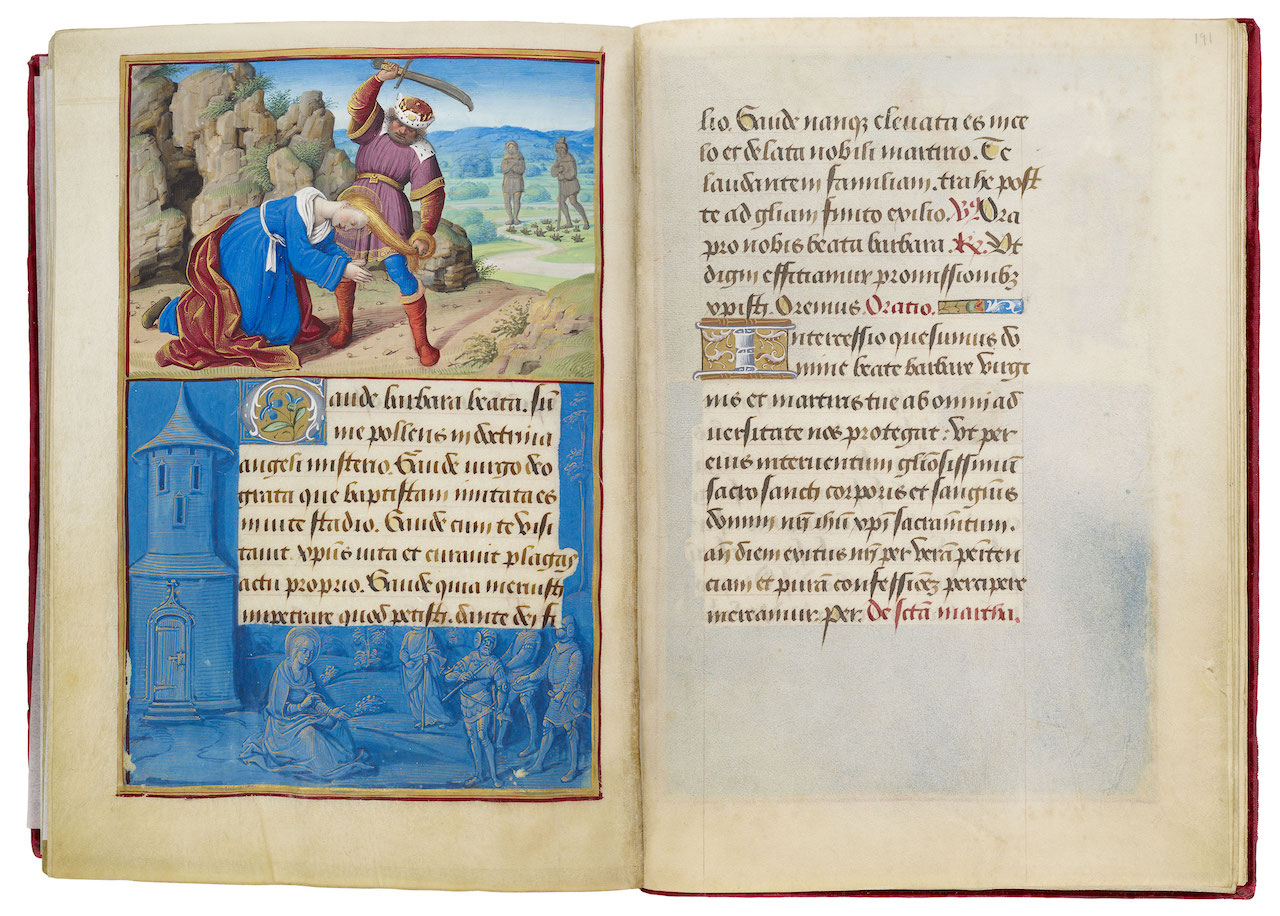 Gaude barbara beata. Sum
me pollens in doctrina
angeli misterio. Gaude virgo deo
grata que baptistam imitata es
in vite stadio. Gaude cum te visi
tavit xpūs vita et curavit plagas
actu proprio. Gaude quia meruisti
impetrare quod petisti. dante dei fi
191
lio. Gaude nanqꝫ elevata es in ce
lo et delata nobili martirio. Te
laudantem familiam. trahe post
te ad gliam finito exilio. V̷ Ora
pro nobis beata barbara. R̷ Ut
digni efficiamur promissionibꝫ
xpisti. Oremus. Oratio.
Intercessio quesumus do
mine beate barbare virgi
nis et martiris tue ab omni ad
versitate nos protegat: ut per
eius interventum gliosissimū
sacro sancti corporis et sanguis
domini nr̄i ihū xpi sacramtum.
an̄ diem exitus nr̄i per verā peniten
ciam et purā confessionē percipere
mereamur. per. De sctā martha.